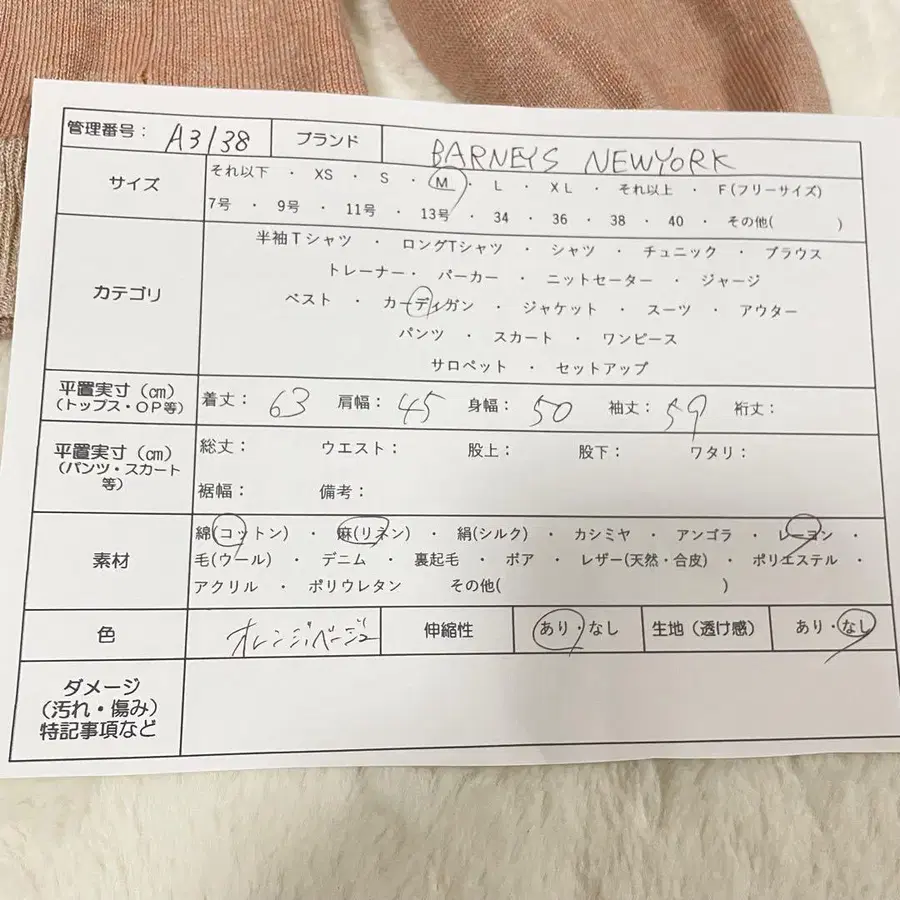 管理番号： A3138 ブランド BARNEYS NEWYORK
サイズ
それ以下 ・ XS ・ S ・ M ・ L ・ XL ・ それ以上 ・ F(フリーサイズ)
7号 ・ 9号 ・ 11号 ・ 13号 ・ 34 ・ 36 ・ 38 ・ 40 ・ その他( )
カテゴリ
半袖Tシャツ ・ ロングTシャツ ・ シャツ ・ チュニック ・ ブラウス
トレーナー ・ パーカー ・ ニットセーター ・ ジャージ
ベスト ・ カーディガン ・ ジャケット ・ スーツ ・ アウター
パンツ ・ スカート ・ ワンピース
サロペット ・ セットアップ
平置実寸（cm）
（トップス・OP等）
着丈： 63 肩幅： 45 身幅： 50 袖丈： 59 裄丈：
平置実寸（cm）
（パンツ・スカート
等）
総丈： ウエスト： 股上： 股下： ワタリ：
裾幅： 備考：
素材
綿(コットン) ・ 麻(リネン) ・ 絹(シルク) ・ カシミヤ ・ アンゴラ ・ レーヨン ・
毛(ウール) ・ デニム ・ 裏起毛 ・ ボア ・ レザー(天然・合皮) ・ ポリエステル ・
アクリル ・ ポリウレタン その他( )
色 オレンジベージュ 伸縮性 あり・なし 生地（透け感） あり・なし
ダメージ
（汚れ・傷み）
特記事項など